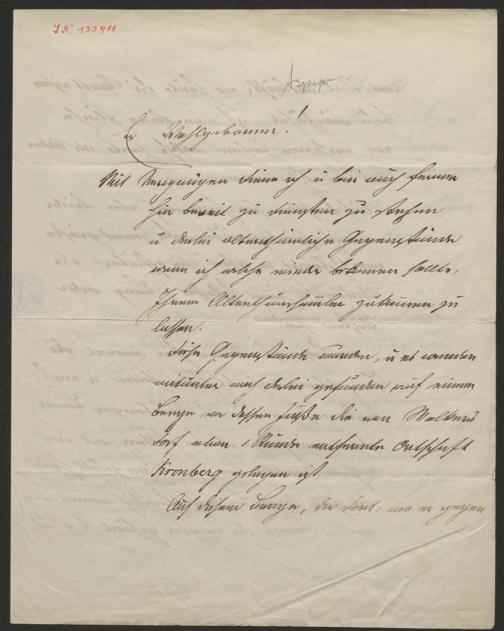 I.N. 133911
Er Wohlgeboren!
Mit Vergnügen diene ich u bin auch ferner
hin bereit zu Diensten zu stehen
u derlei alterthümliche Gegenstände
wenn ich welche wieder bekomen sollte,
Ihnen zukomen zu
lassen.
Diese Gegenstände wurden, u es werden
mitunter noch derlei gefunden auf einem
Berge, an dessen Fuße die von
dorf etwa 1 Stunde entfernte Ortschaft
Kronberg gelegen ist
Auf diesem Berge, der dort, wo er gegen